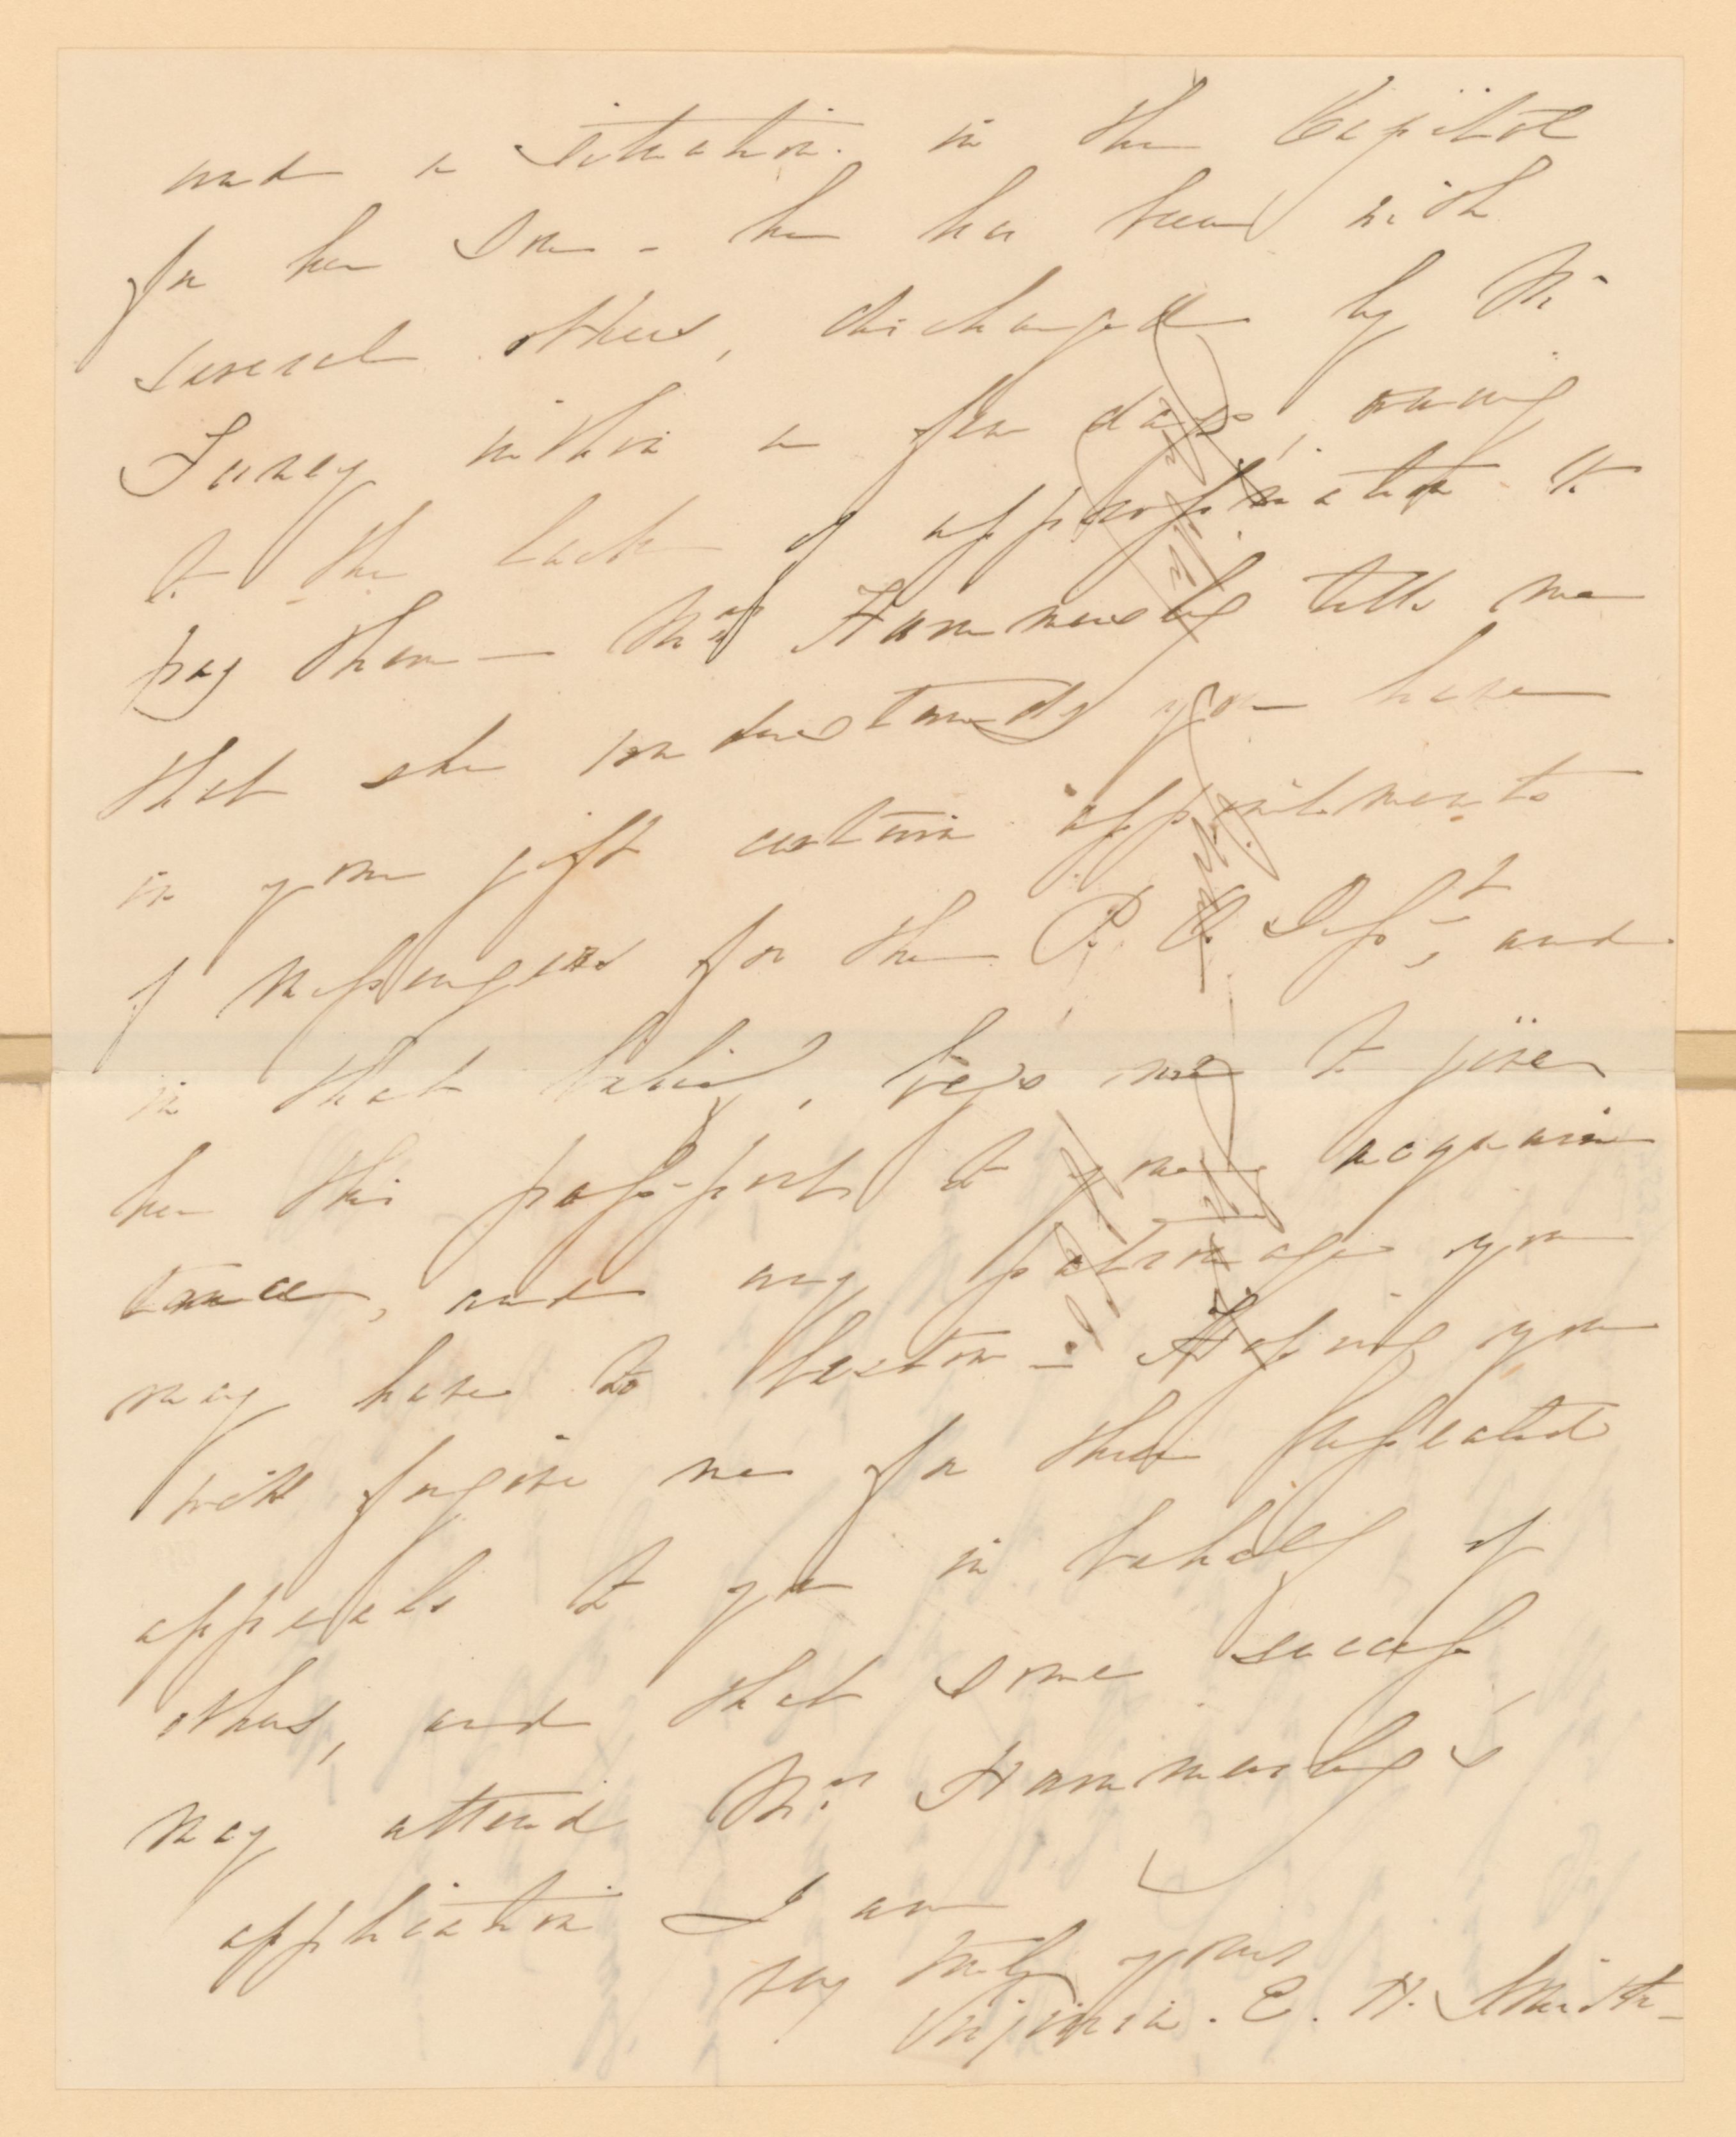 and a situation in the Capitol
for her son - he has been with
several others, discharged by Mr
Forney within a few days, owing
to the lack of appropriation to
pay them — Mrs Hammersley tells me
that she understands you have
in your gift certain appointments
of Messengers for the P. O. Dept, and
in that belief, begs me to give
her this pass-port to your acquain
tance, and any patronage you
may have to bestow - Hoping you
will forgive me for these repeated
appeals to you in behalf of
others, and that some success
may attend Mrs Hammersley's
application I am
very truly yours
Virginia. E. H. Smith -